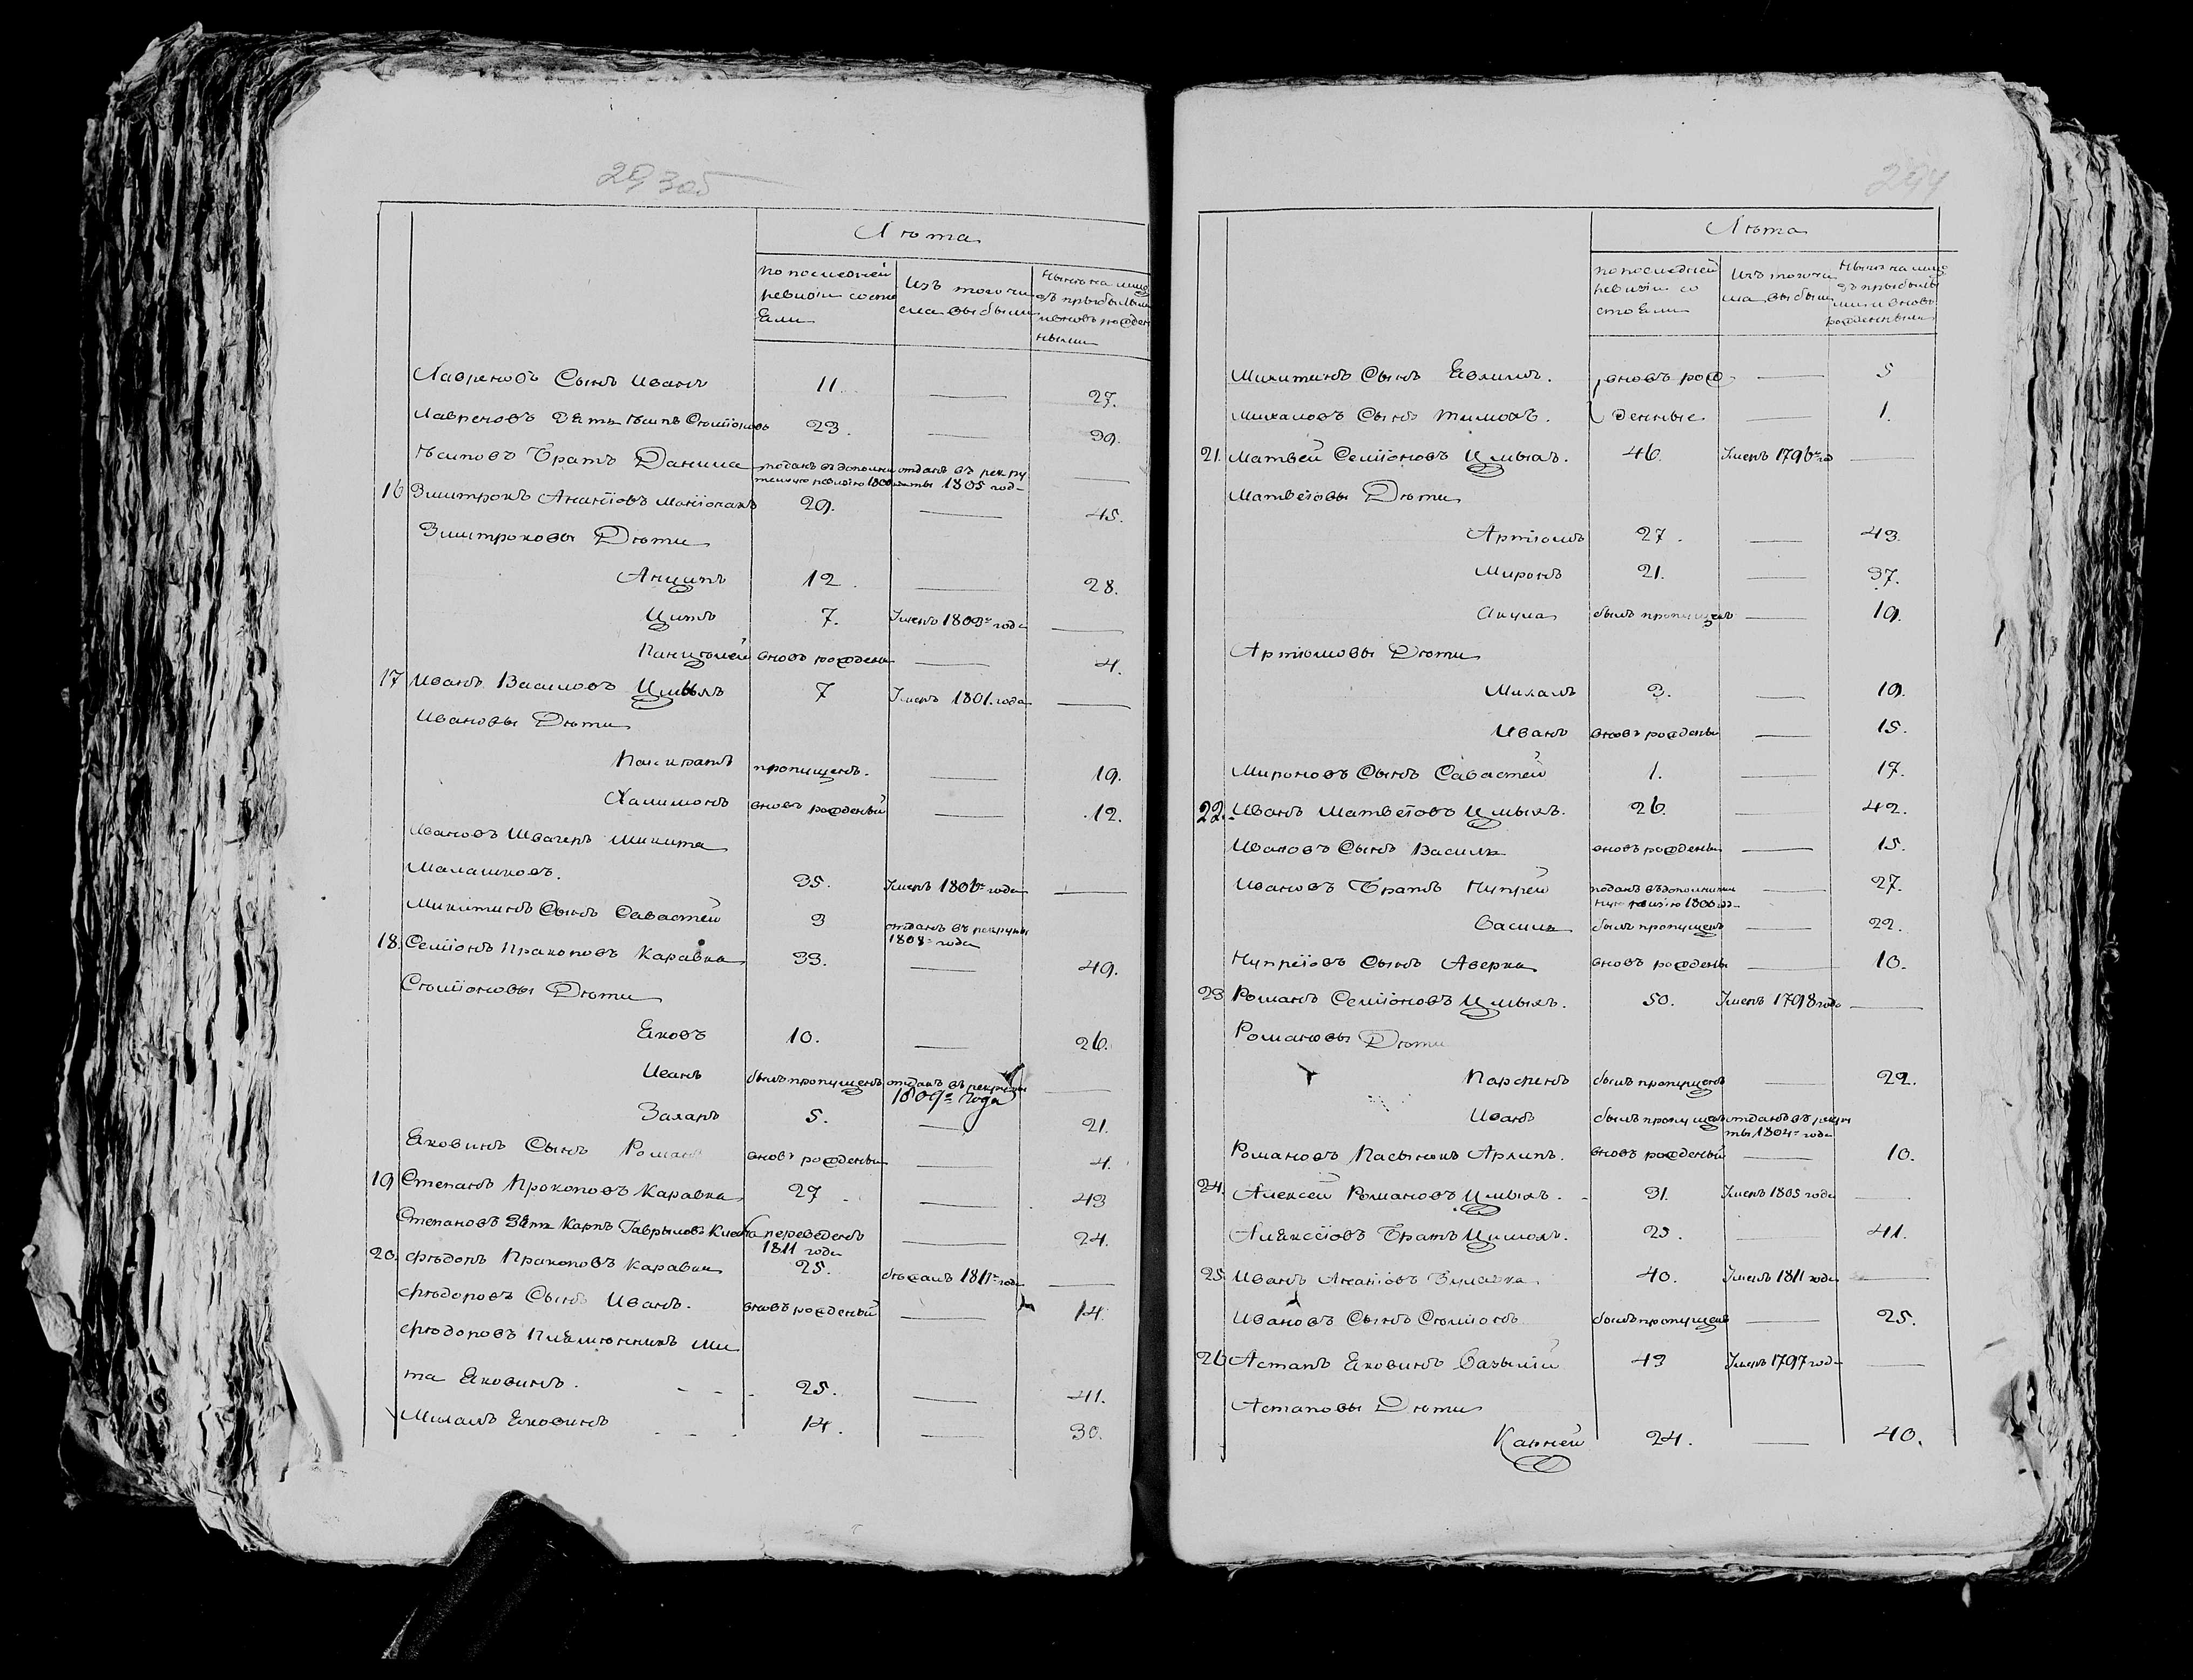 293об
Лѣта
по последней ревизіи состо
Яли
Изъ того чи
сла выбыли
Нынѣ на лицо
съ прибылыми
и вновь рожден
ными
Лавреновъ Сынъ Иванъ 11. — 27.
Лавреновъ ЗЯть Стіоновъ 23. — 39.
Братъ Данила поданъ въ дополни тельную ревизію 1800 отданъ въ рекру ты 1805 год —
16 Змитрокъ Ананіовъ 29. — 45.
Змитроковы Дѣти
Анципъ 12. — 28.
Цитъ 7. Умеръ 1803го года —
вновь рожденъ — 4.
17 Иванъ Василовъ Цмыхъ 7 Умеръ 1801. года —
Ивановы Дѣти
пропущенъ. — 19.
Халимонъ вновь рожденый — 12.
Ивановъ Швагеръ Микита
Малашковъ. 35. Умеръ 1806го года —
Микитинъ Сынъ Савастей 3 отданъ въ рекруты
1808го года
18. Семіонъ Пракоповъ Каравка 33. — 49.
Сѣміоновы Дѣти
Яковъ 10. — 26.
Иванъ былъ пропущенъ отданъ въ рекруты —
1809го года
Захаръ 5. — 21.
Яковинъ Сынъ Романъ вновь рожденый — 4.
19 Степанъ Прокоповъ Каравка 27 — 43
Степановъ ЗЯть Карпъ Гаврыловъ переведенъ — 24.
1811 года
20. Фѣдоръ Пракоповъ Каравка 25. бѣжалъ 1811го года —
Фѣдоровъ Сынъ Иванъ. вновь рожденый — 14.
Фѣдоровъ ПлЕмѣнникъ Ми
та Яковинъ. - - - 25. — 41.
Михалъ Яковинъ - - - 14. — 30.
294
Лѣта
по последней
ревизіи со
стоЯли
Изъ того чи
сла выбыли
Нынѣ на лицо
съ прибылы
ми и вновь
рожденными
Микитинъ Сынъ вновь рож — 5
Михаловъ Сынъ Тимохъ. денные — 1.
21. Матвей Семіоновъ Цмыхъ. 46. Умеръ 1796го го —
Матвеіовы Дѣти
Артіомъ 27. — 43.
Миронъ 21. — 37.
Акула былъ пропущенъ — 19.
Артіомовы Дѣти
Михалъ 3. — 19.
Иванъ вновь рожденый — 15.
Мироновъ Сынъ Савастей 1. — 17.
22. Иванъ Матвеіовъ Цмыхъ. 26. — 42.
Ивановъ Сынъ Василь вновь рожденый — 15.
Ивановъ Братъ Нупрей поданъ въ дополнитель — 27.
ную ревизію 1800 год
Василь былъ пропущенъ — 22.
Нупреіовъ Сынъ Аверка вновь рожденый — 10.
23 Романъ Семіоновъ Цмыхъ. 50. Умеръ 1798 года —
Романовы Дѣти
Парфенъ былъ пропущенъ — 22.
Иванъ былъ пропущенъ отданъ въ рекру
ты 1804го года
Романовъ Пасынокъ Архипъ. вновь рожденый — 10.
24. Алексей Романовъ Цмыхъ. - 31. Умеръ 1805 года —
АлЕксеіовъ Братъ 25. — 41.
25. Иванъ Ананіовъ 40. Умеръ 1811 года —
Ивановъ Сынъ Сѣміонъ былъ пропущенъ — 25.
26 Астапъ Яковинъ 43 Умеръ 1797 год —
Астаповы Дѣти
Карней 24. — 40.